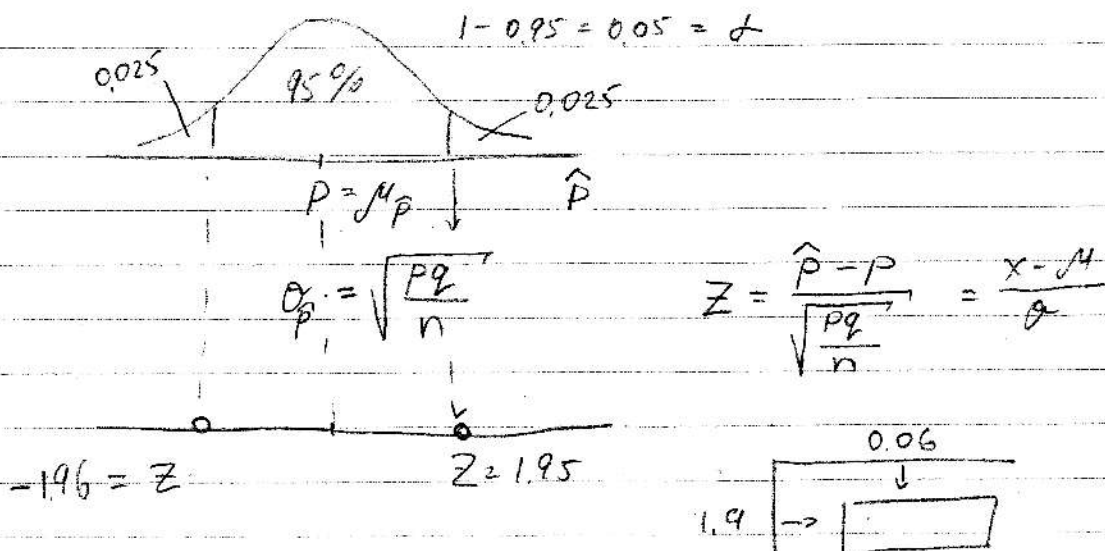 1 - 0.95 = 0.05 = α
0.025
95%
0.025
P = μ_p̂
p̂
σ_p̂ = √(pq/n)
Z = (p̂ - p)/√(pq/n) = (x - μ)/σ
-1.96 = Z
Z = 1.95
0.06
1.9 →